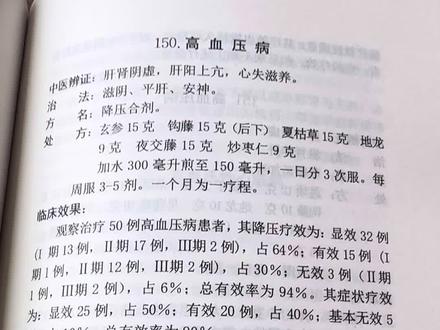 150.高血压病
中医辨证：肝肾阴虚，肝阳上亢，心失滋养。
治　　法：滋阴、平肝、安神。
方　　名：降压合剂。
处　　方：玄参15克　钩藤15克（后下）　夏枯草15克　地龙
9克　夜交藤15克　炒枣仁9克
加水300毫升煎至150毫升，一日分3次服。每
周服3-5剂。一个月为一疗程。
临床效果：
观察治疗50例高血压病患者，其降压疗效为：显效32例
(I期13例，II期17例，III期2例)，占64%；有效15例(I
期1例，II期12例，III期2例)，占30%；无效3例(II期
1例，III期2例)，占6%；总有效率为94%。其症状疗效
为：显效25例，占50%；有效20例，占40%；基本无效5